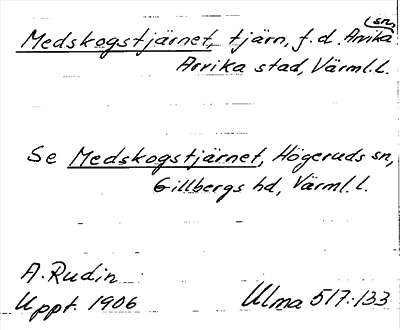 Medskogstjärnet, tjärn, f.d. Arvika (sn,
Arvika stad, Värml. L.
Se Medskogstjärnet, Högeruds sn,
Gillbergs hd, Värml. L.
A. Rudin
Uppt. 1906 Ulma 517:133